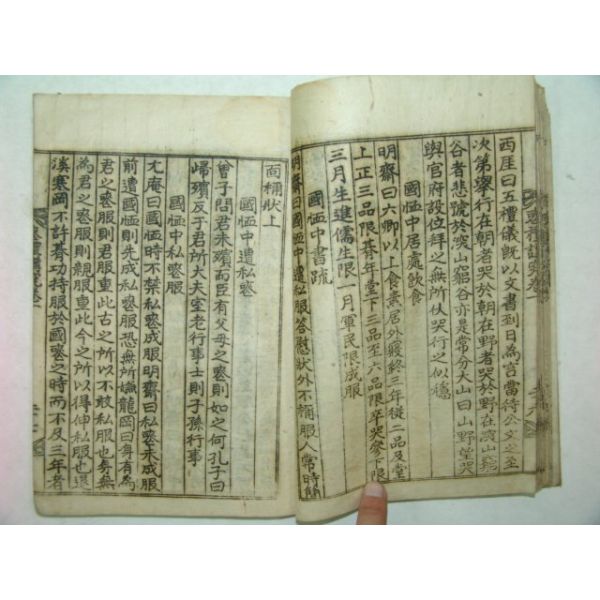 西厓曰五禮儀旣以文書到日為言當待公文之至
次第擧行在朝者哭於朝在野者哭於野在深山窮
谷者悲號於深山窮谷亦是常分大山曰山野望哭
與官府設位拜之無所仗哭行之似穩
國恤中居處飮食
明齋曰六卿以上食素居外寢終三年後二品及堂
上正三品限朞年堂下三品至六品限卒哭參下限
三月生進儒生限一月軍民限成服
國恤中書疏
明齋曰國恤中遭私喪服答慰狀外不稱服人常時簡
面稱狀上
國恤中遭私喪
曾子問君未殯而臣有父母之喪則如之何孔子曰
歸殯反于君所大夫室老行事士則子孫行事
國恤中私喪服
尤庵曰國恤時不禁私喪成服明齋曰私喪未成服
前遭國恤則先成私喪服恐無所嫌龍岡曰身有為
君之喪服則君服重此古之所以不敢私服也身無
為君之喪服則親服重此今之所以得伸私服也退
溪寒岡不許朞功持服於國喪之時而不及三年者